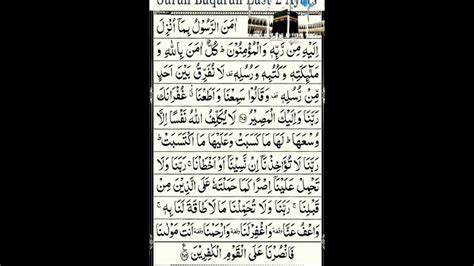 Surah Baqarah Last 2 Ayat
اٰمَنَ الرَّسُوْلُ بِمَاۤ اُنْزِلَ
اِلَيْهِ مِنْ رَّبِّهٖ وَالْمُؤْمِنُوْنَ ؕ كُلٌّ اٰمَنَ بِاللّٰهِ وَ
مَلٰٓئِكَتِهٖ وَكُتُبِهٖ وَرُسُلِهٖ ۟ لَا نُفَرِّقُ بَيْنَ اَحَدٍ
مِّنْ رُّسُلِهٖ ۟ وَقَالُوْا سَمِعْنَا وَاَطَعْنَا ٘ غُفْرَانَكَ
رَبَّنَا وَاِلَيْكَ الْمَصِيْرُ ۝۲۸۵ لَا يُكَلِّفُ اللّٰهُ نَفْسًا اِلَّا
وُسْعَهَا ؕ لَهَا مَا كَسَبَتْ وَعَلَيْهَا مَا اكْتَسَبَتْ ؕ
رَبَّنَا لَا تُؤَاخِذْنَاۤ اِنْ نَّسِيْنَاۤ اَوْ اَخْطَاْنَا ۚ رَبَّنَا وَلَا
تَحْمِلْ عَلَيْنَاۤ اِصْرًا كَمَا حَمَلْتَهٗ عَلَى الَّذِيْنَ مِنْ
قَبْلِنَا ۚ رَبَّنَا وَلَا تُحَمِّلْنَا مَا لَا طَاقَةَ لَنَا بِهٖ ۚ
وَاعْفُ عَنَّا وقفة وَاغْفِرْ لَنَا وقفة وَارْحَمْنَا وقفة اَنْتَ مَوْلٰىنَا
فَانْصُرْنَا عَلَى الْقَوْمِ الْكٰفِرِيْنَ ۝۲۸۶